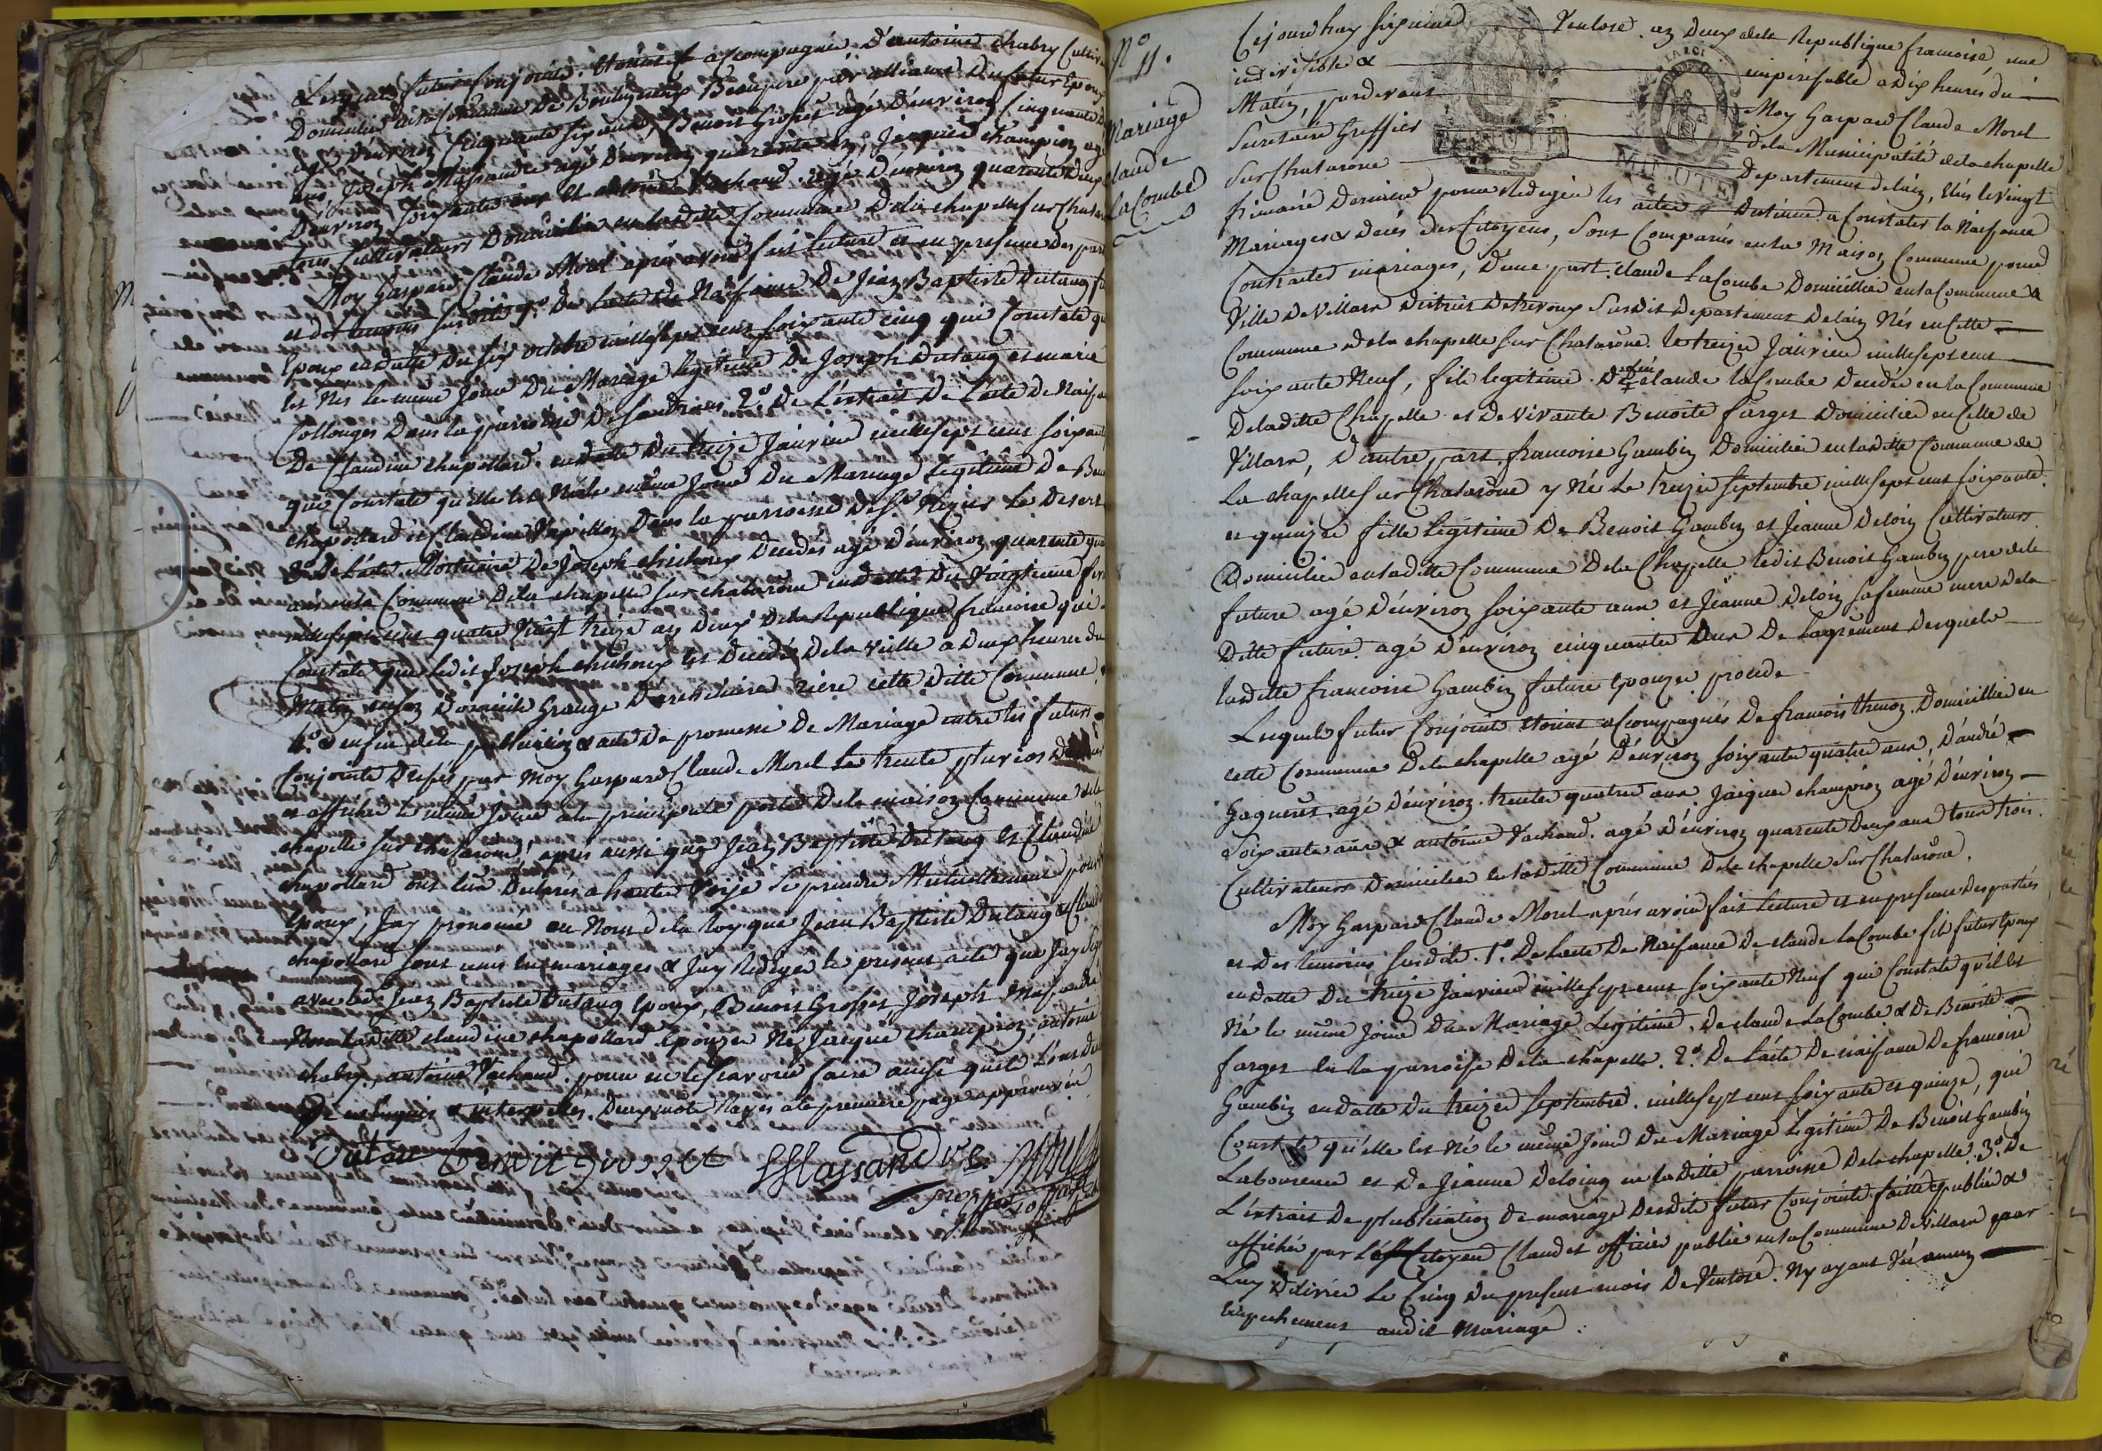 Lesquels futur Conjoints. Etoient accompagnés d'antoine Chabry Cultiv
Domicilié en la Commune De Bouligneux Beaupere par alliance Du futur Epoux
agé D'environ Cinquante six ans, Benoit Grosset agé D'environ Cinquante
ans Joseph Massandre agé D'environ quarante ans, Jacques Champion agé
D'environ soixante ans Et antoine Vachaud agé D'environ quarente Deux
tous Cultivateurs Domiciliés en laditte Commune Dela chapelle sur Chatar
Moy Gaspard Claude Morel après avoir fait lecture et en presence Des part
et des temoins susdits 1º. De l'acte De Naissance De Jean Baptiste Dutang fu
Epoux en datte Du six octobre mille sept cent soixante cinq qui Constate qu
est Né le meme Jour Du Mariage legitime De Joseph Dutang et marie
Collonges Dans la parroisse De Sandrans 2º. De L'extrait De L'acte De Naiss
De Claudine chapollard en datte Du treize Janvier mille sept cent soixant
qui Constate qu'elle est Née le même Jour Du Mariage Legitime De Ben
chapollard et Claudine Papillon Dans la parroisse De St. Nizier Le Desert
3º De l'acte Mortuaire De Joseph chichoux Decedé agé D'environ quarente qua
ans en la Commune Dela chapelle sur chatarône en datte Du Vingtieme
mille sept cent quatre Vingt treize an Deux Dela Republique francoise qui
Constate que ledit Joseph chichoux est Decedé Dela veille a Deux heures du
Matin en son Domicile Grange riere cette ditte Commune
4º. & enfin dela publication & acte De promesse De Mariage entre les futurs
Conjoints Dressé par Moy Gaspard Claude Morel Le trente pluvios
et affiché le même Jour ala principale porte Dela maison Commune dela
chapelle sur chatarône, après aussi que Jean Baptiste Dutang et Claudine
chapollard ont Declaré a haute voix se prendre Mutuellement pour
Epoux, Jay prononcé au Nom dela Loy que Jean Baptiste Dutang et Claud
chapollard sont unis en mariages & Jay Redigé le present acte que Jay sig
avec ledit Jean Baptiste Dutang Epoux, Benoit Grosset, Joseph Massandre
Non laditte claudine chapollard Epouze Ny Jacque Champion, antoine
chabry, antoine Vachaud pour ne le scavoir faire ainsi qu'ils l'ont de
De ce Enquis & interpellés. Deux mots rayés ala premiere page approuvée
Dutan benoit grosset Massandre
Nº
11.
Mariage
claude
LaCombe
Cejourdhuy sixieme Ventose an Deux dela Republique francoise une
indivisible & imperissable a Dix heures du
Matin, pardevant Moy Gaspard Claude Morel
Secretaire Greffier dela Municipalité dela chapelle
Sur Chatarône Departement Delain, Elus le vingt
frimaire Dernier pour Rediger les actes Destinés a Constater la Naissance
Mariages & deces des Citoyens, sont Comparus en la Maison Commune pour
Contracter mariages, D'une part claude LaCombe Domicillié en la Commune &
Ville De Villars District De trevoux Susdit Departement Delain Né en Cette
Commune dela chapelle sur Chatarône. le treize Janvier mille sept cent
soixante Neuf, fils legitime De feu claude laCombe Decedé en la Commune
De laditte Chapelle et De vivante Benoite farges Domiciliée en celle de
Villars, D'autre part francoise Gambin Domiciliée en laditte Commune de
La chapelle sur Chatarône y Née Le treize septembre mille sept cent soixante
et quinze fille Legitime De Benoit Gambin et Jeanne Deloin Cultivateurs
Domicilié en laditte Commune Dela Chapelle ledit Benoit Gambin pere dela
future agé D'environ soixante ans et Jeanne Deloin sa femme mere dela
Ditte future agé D'environ cinquante Deux De Lagrement Desquels
laditte francoise Gambin future Epouze procede
Lesquels futur Conjoints Etoient accompagnés De francois thenoz Domicillié en
cette Commune Dela chapelle agé D'environ soixante quatre ans, D'andré
Gagneur agé D'environ trente quatre ans Jacque champion agé D'environ
Soixante ans & antoine Vachaud agé d'environ quarente Deux ans tous trois
Cultivateurs Domiciliés en laditte Commune Dela chapelle sur Chatarône.
Moy Gaspard Claude Morel après avoir fait Lecture et en presence Des parties
et Des temoins susdits. 1º. De Lacte De Naissance De claude LaCombe fils futur Epoux
en datte Du treize Janvier mille sept cent soixante Neuf qui Constate qu'il est
Né le même Jour Du Mariage Legitime, De claude LaCombe & De Benoite
farges en la parroisse Dela chapelle. 2º. De L'acte De naissance De francoise
Gambin en datte Du treize septembre mille sept cent soixante et quinze, qui
Constate qu'elle est Né le même Jour Du Mariage Legitime De Benoit Gambin
Laboureur et De Jeanne Deloing en laditte parroisse Dela chapelle. 3º. De
L'extrait De publication De mariage Desdits futur Conjoints faitte publiée &
affichée par Le Citoyen Claudet officier public en la Commune De Villars par
Luy Delivrée Le Cinq Du present mois De Ventose. Ny ayant Eû aucun
Empechement audit Mariage.